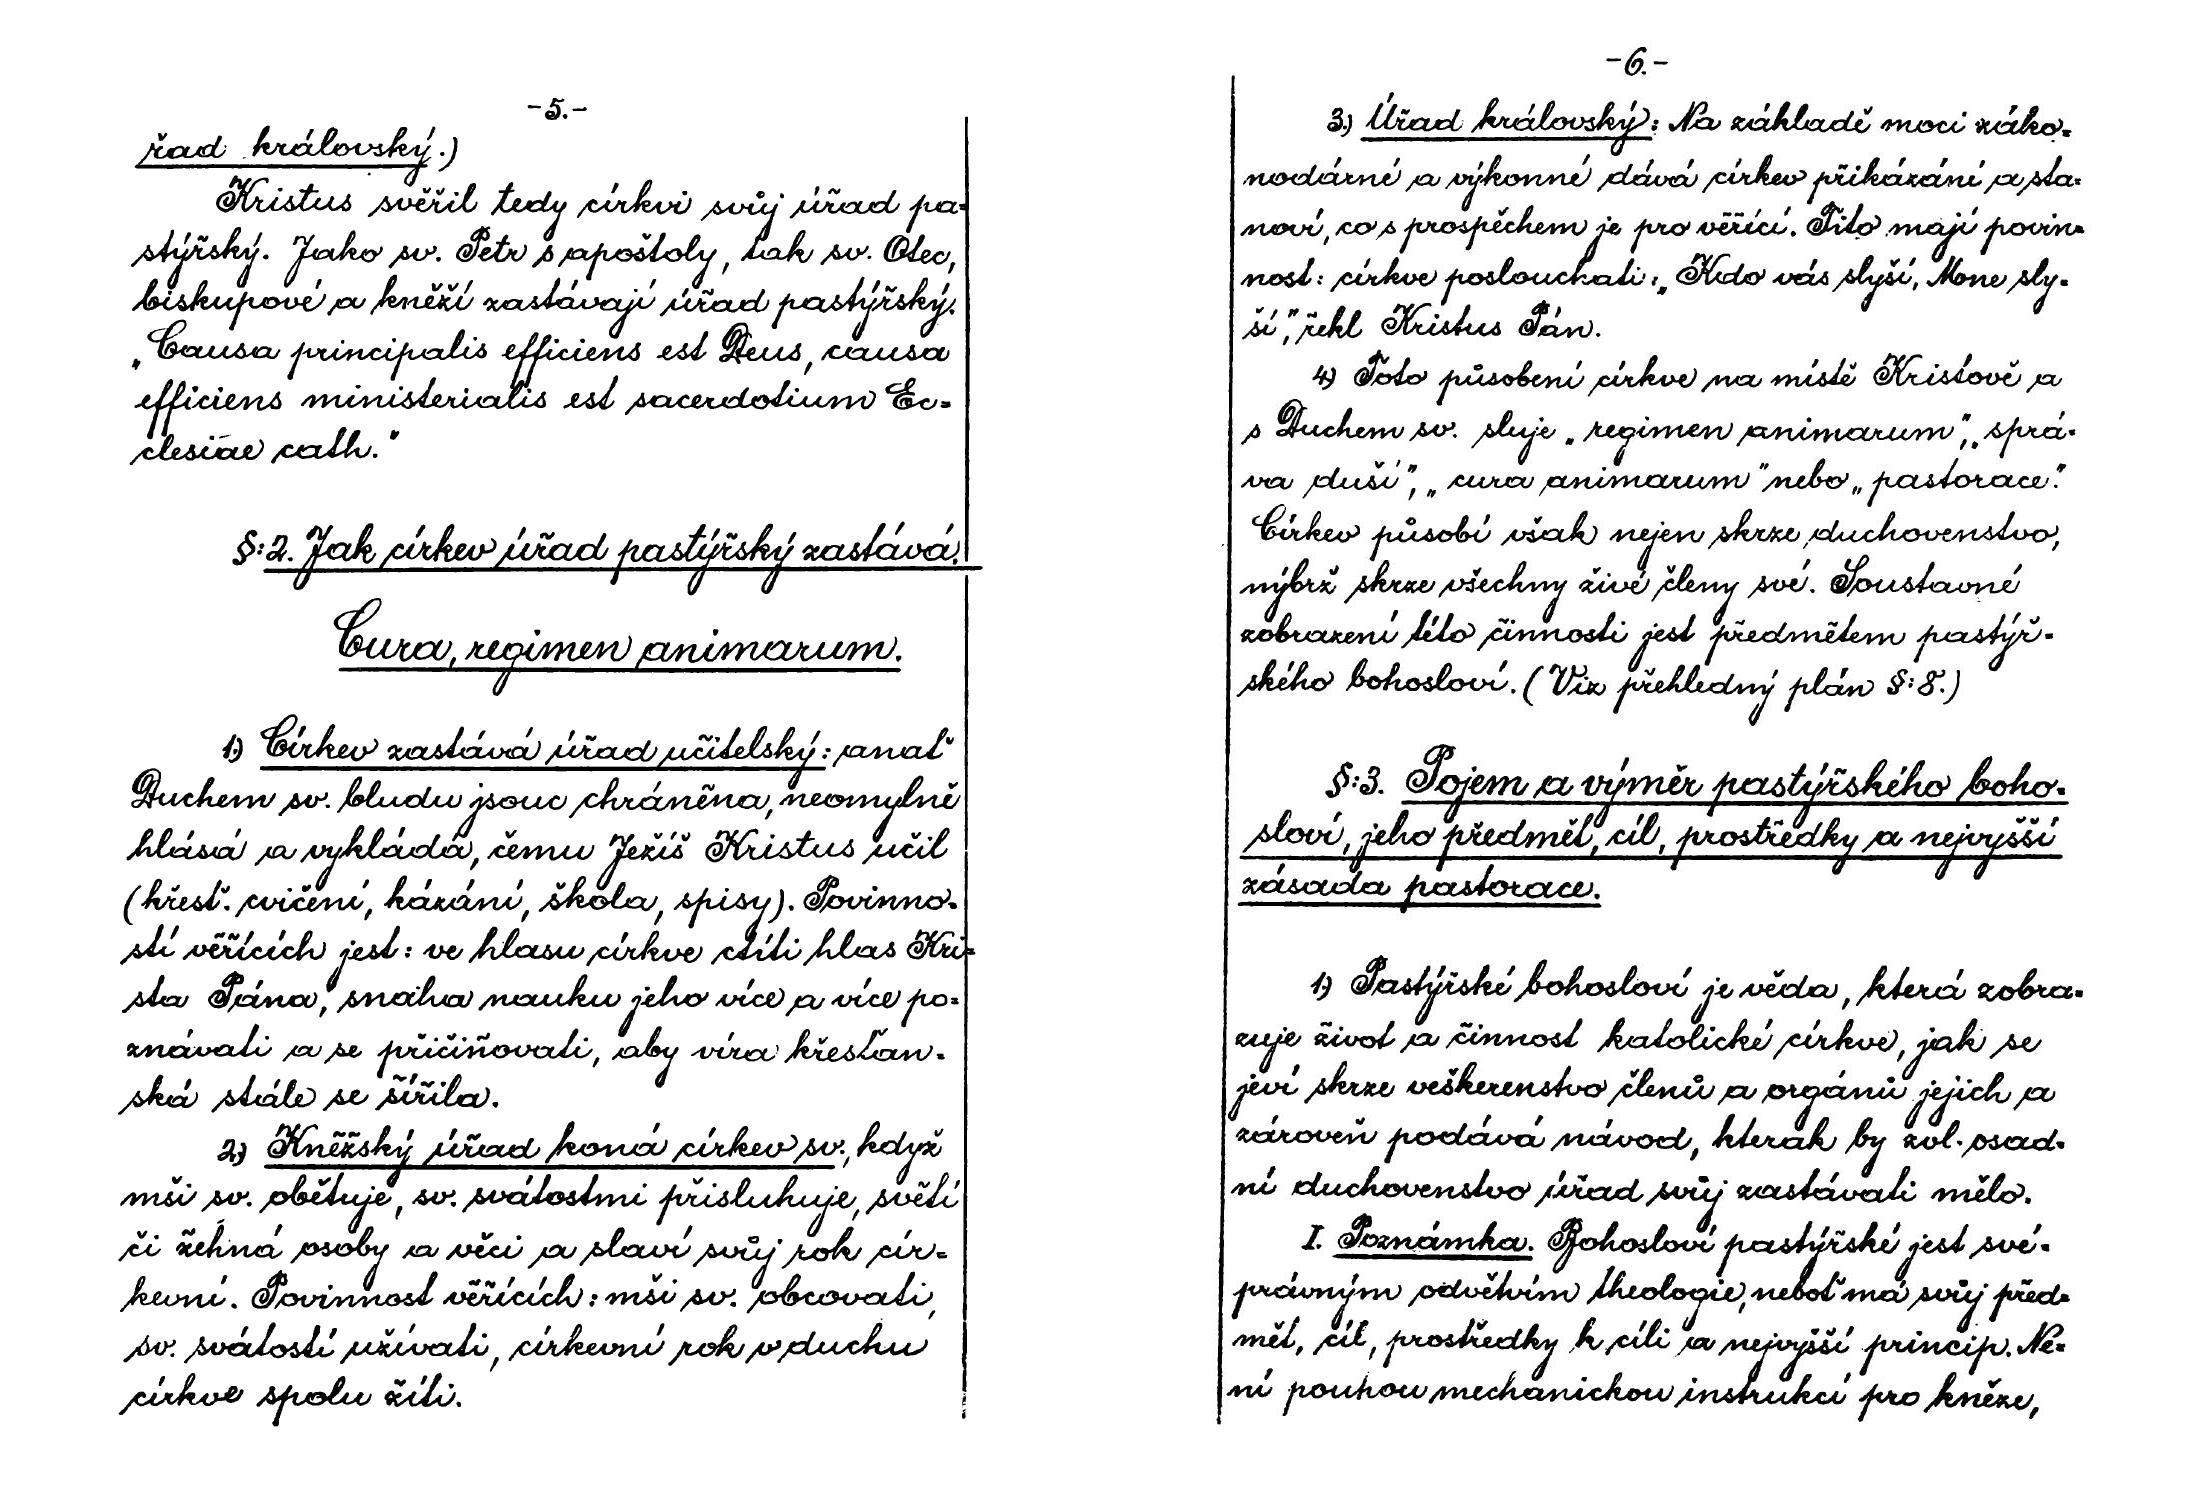 -5.-
řad královský.)
Kristus svěřil tedy církvi svůj úřad pa-
stýřský. Jako sv. Petr s apoštoly, tak sv. Otec,
biskupové a kněží zastávají úřad pastýřský.
„Causa principalis efficiens est Deus, causa
efficiens ministerialis est sacerdotium Ec-
clesiae cath."
§:2. Jak církev úřad pastýřský zastává.
Cura, regimen animarum.
1.) Církev zastává úřad učitelský: anať
Duchem sv. bludu jsouc chráněna, neomylně
hlásá a vykládá, čemu Ježíš Kristus učil
(křest. cvičení, kázání, škola, spisy). Povinno-
stí věřících jest: ve hlasu církve ctíti hlas Kri-
sta Pána, snaha nauku jeho více a více po-
znávati a se přičiňovati, aby víra křesťan-
ská stále se šířila.
2.) Kněžský úřad koná církev sv., když
mši sv. obětuje, sv. svátostmi přisluhuje, světí
či žehná osoby a věci a slaví svůj rok cír-
kevní. Povinnost věřících: mši sv. obcovati,
sv. svátostí užívati, církevní rok v duchu
církve spolu žíti.
-6.-
3.) Úřad královský: Na základě moci záko-
nodárné a výkonné dává církev přikázání a sta-
noví, co s prospěchem je pro věřící. Tito mají povin-
nost: církve poslouchati: „Kdo vás slyší, Mne sly-
ší", řekl Kristus Pán.
4.) Toto působení církve na místě Kristově a
s Duchem sv. sluje „regimen animarum", „sprá-
va duší", „cura animarum" nebo „pastorace."
Církev působí však nejen skrze duchovenstvo,
nýbrž skrze všechny živé členy své. Soustavné
zobrazení této činnosti jest předmětem pastýř-
ského bohosloví. (Viz přehledný plán §:8.)
§:3. Pojem a výměr pastýřského boho-
sloví, jeho předmět, cíl, prostředky a nejvyšší
zásada pastorace.
1.) Pastýřské bohosloví je věda, která zobra-
zuje život a činnost katolické církve, jak se
jeví skrze veškerenstvo členů a orgánů jejich a
zároveň podává návod, kterak by zvl. osad-
ní duchovenstvo úřad svůj zastávati mělo.
I. Poznámka. Bohosloví pastýřské jest své-
právným odvětvím theologie, neboť má svůj před-
mět, cíl, prostředky k cíli a nejvyšší princip. Ne-
ní pouhou mechanickou instrukcí pro kněze,